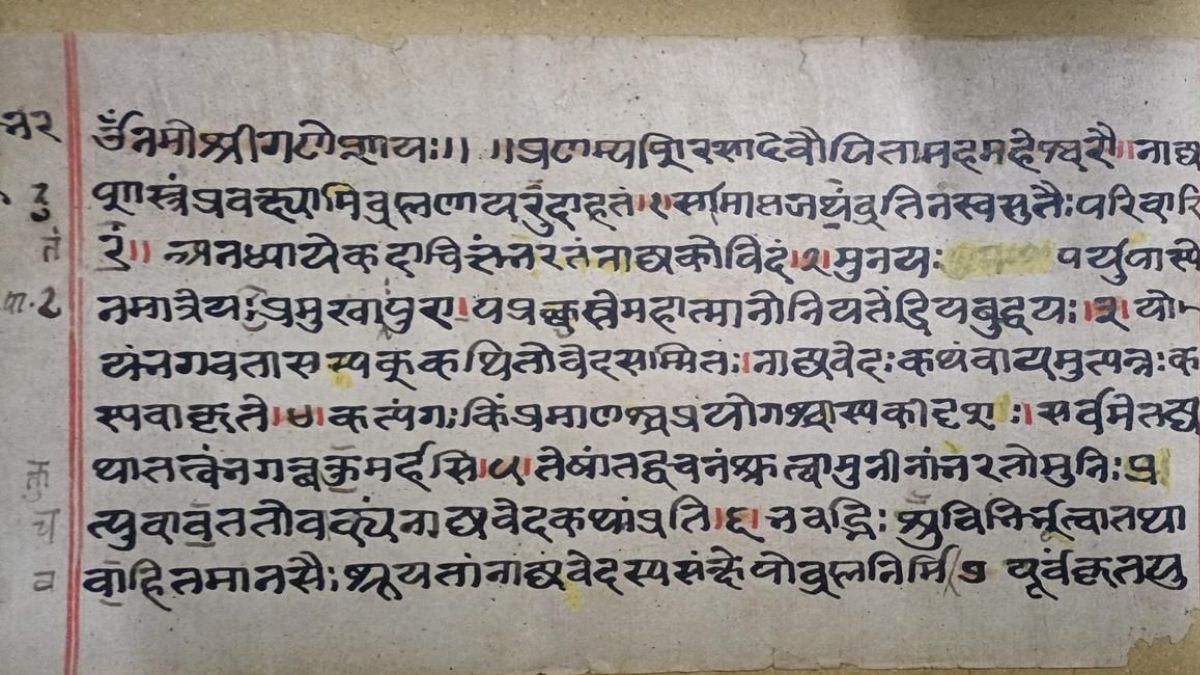 ॐनमोश्रीगणेशायः॥ ॥प्रणम्यशिरसादेवौपितामहमहेश्वरौ॥नाट्य
शास्त्रंप्रवक्ष्यामिब्रह्मणायदुदाहृतं।१।समाप्तजप्यंव्रतिनंस्वसुतैःपरिवारि
तं॥अनध्यायेकदाचित्तंभरतंनाट्यकोविदं।२।मुनयः पर्युपास्ये
नमात्रेयःप्रमुखापुरा।पप्रच्छुस्तेमहात्मानोनियतेंद्रियबुद्धयः।३।यो
यंभगवतासम्यक्कथितोवेदसम्मितः।नाट्यवेदःकथंवायमुत्पन्नःक
स्यवाकृते।४।कत्यंगःकिंप्रमाणश्चप्रयोगश्चास्यकीदृशः।सर्वमेतद्य
थातत्वंभगवन्वक्तुमर्हसि।५।तेषांतद्वचनंश्रुत्वामुनीनांभरतोमुनिः प्र
त्युवाचततोवाक्यंनाट्यवेदकथांप्रति।६।भवद्भिःश्रुचिभिर्भूत्वातथा
वाहितमानसैःश्रूयतांनाट्यवेदस्यसंक्षेपोब्रह्मनिर्मि ७ पूर्वंकृतयु